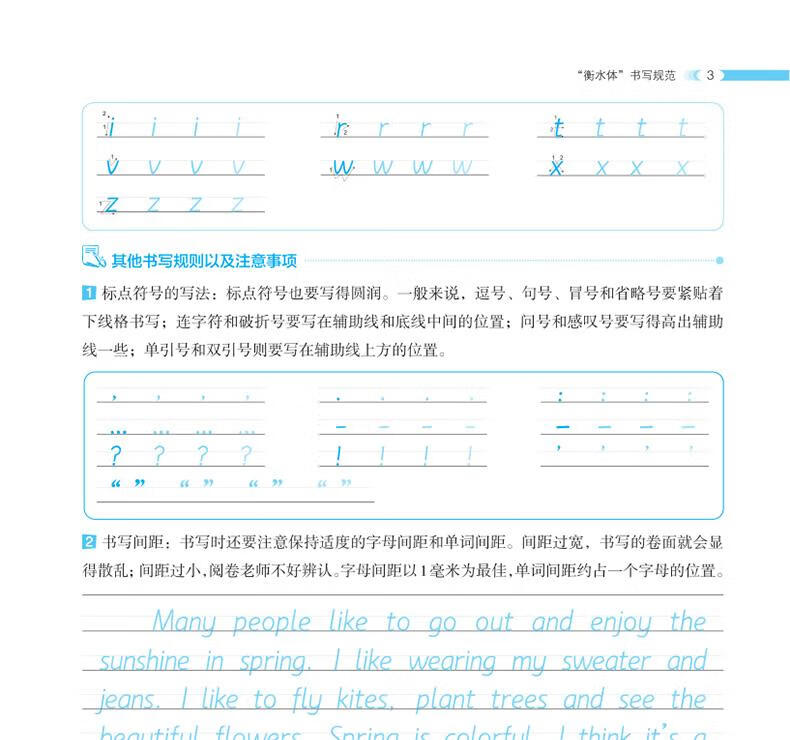 “衡水体”书写规范 3
i i i i r r r r t t t t
v v v v w w w w x x x x
z z z z
其他书写规则以及注意事项
1 标点符号的写法：标点符号也要写得圆润。一般来说，逗号、句号、冒号和省略号要紧贴着
下线格书写；连字符和破折号要写在辅助线和底线中间的位置；问号和感叹号要写得高出辅助
线一些；单引号和双引号则要写在辅助线上方的位置。
, , , , . . . . : : : :
... ... ... ... - - - - — — — —
? ? ? ? ! ! ! ! ’ ’ ’ ’
“ ” “ ” “ ” “ ”
2 书写间距：书写时还要注意保持适度的字母间距和单词间距。间距过宽，书写的卷面就会显
得散乱；间距过小，阅卷老师不好辨认。字母间距以1毫米为最佳，单词间距约占一个字母的位置。
Many people like to go out and enjoy the
sunshine in spring. I like wearing my sweater and
jeans. I like to fly kites, plant trees and see the
beautiful flowers. Spring is colorful. I think it's a